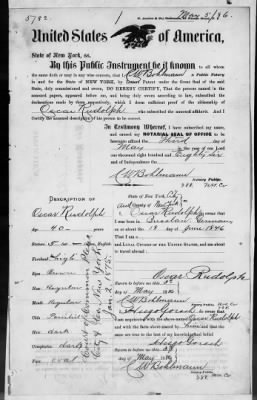 5782
May 5/86
United States of America,
State of New York, ss.
By this Public Instrument be it known to all whom
the same doth or may in any wise concern, that I, C W Bohlmann a Public Notary
in and for the State of NEW YORK, by Letters Patent under the Great Seal of the said
State, duly commissioned and sworn, DO HEREBY CERTIFY, That the persons named in the
annexed, appeared before me, and being duly sworn according to law, subscribed the
declarations made by them respectively, which I deem sufficient proof of the citizenship of
Oscar Rudolph who subscribed the annexed affidavit. And I
Certify the annexed description of his person to be correct.
In Testimony Whereof, I have subscribed my name,
and caused my NOTARIAL SEAL OF OFFICE to be
hereunto affixed the Third day of
May in the year of our Lord
one thousand eight hundred and Eighty six
C W Bohlmann
Notary Public
DESCRIPTION OF
Oscar Rudolph
Age 40 years
Stature 5 English
Forehead high
Eyes Brown
Nose Regular
Mouth Regular
Chin
Hair dark
Complexion dark
Face oval
Court of Common Pleas
City & County of New York
Jan. 2, 1875.
State of New York
and County of New York
I, Oscar Rudolph do swear that I was
born in Breslau Germany
on or about the 18 day of June 1846
and Legal Citizen of the United States, and am about to travel
abroad.
Oscar Rudolph
Sworn to before me this 3d
day of May 1886
C W Bohlmann
Notary Public
I, Hugo Gorsch do swear that I am
acquainted with the above-named Oscar Rudolph
and with the facts above stated by him and that the same are
true to the best of my knowledge and belief.
Hugo Gorsch
Sworn to before me this 3d
day of May 1886
C W Bohlmann
Notary Public